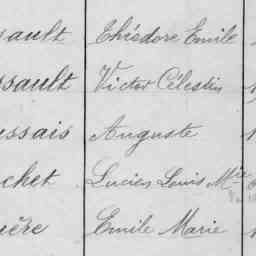 sault Théodore Emile
ssault Victor Célestin
ssais Auguste
chet Lucien Louis Mie
ière Emile Marie